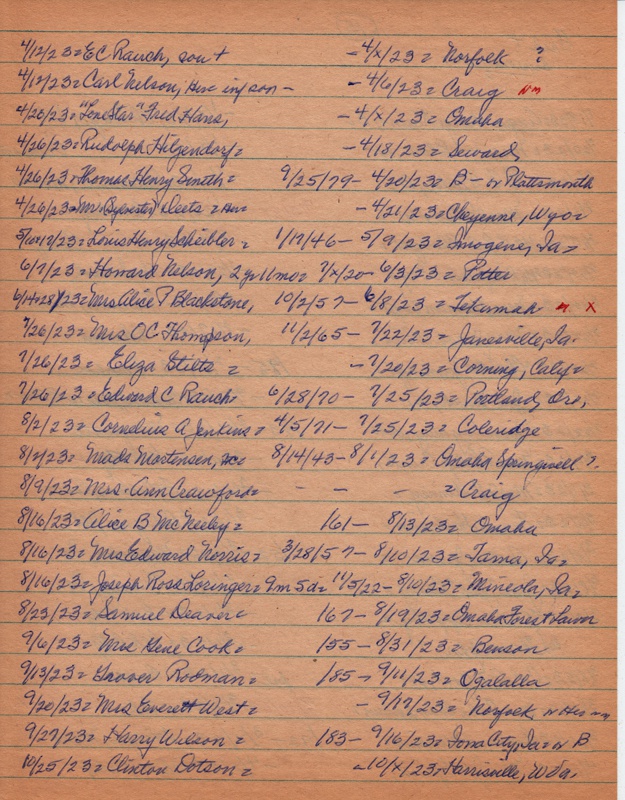 4/12/23 = EC Rauch, son + - 4/x/23 = Norfolk ?
4/12/23 = Carl Nelson, Here inf son - - 4/6/23 = Craig nm
4/20/23 = "Lone Star" Fred Hans, - 4/x/23 = Omaha
4/26/23 = Rudolph Hilgendorf = - 4/18/23 = Seward,
4/26/23 = Thomas Henry Smith = 9/25/79 - 4/20/23 = B - or Plattsmouth
4/26/23 = Mr (Sylvester) Deets = Her - 4/21/23 = Cheyenne, Wyo =
5/10+17/23 = Louis Henry Scheibler = 1/17/46 - 5/9/23 = Imogene, Ia =
6/7/23 = Howard Nelson, 2 yr 11 mo = 7/x/20 - 6/3/23 = Potter
6/14+28/23 = Mrs Alice P Blackstone, 10/2/57 - 6/8/23 = Tekamah x
7/26/23 = Mrs OC Thompson, 11/2/65 - 7/22/23 = Janesville, Ia.
7/26/23 = Eliza Stilts = - 7/20/23 = Corning, Calif =
7/26/23 = Edward C Rauch = 6/28/70 - 7/25/23 = Portland, Ore,
8/2/23 = Cornelius A Jenkins = 4/5/71 - 7/25/23 = Coleridge
8/2/23 = Mads Mortensen, 8/14/43 - 8/1/23 = Omaha Springwell ?
8/9/23 = Mrs. Ann Crawford = - - - = Craig
8/16/23 = Alice B McNeeley = 161 - 8/13/23 = Omaha
8/16/23 = Mrs Edward Norris = 3/28/57 - 8/10/23 = Tama, Ia =
8/16/23 = Joseph Ross Loringer = 9m 5d = 11/5/22 - 8/10/23 = Mineola, Ia =
8/23/23 = Samuel Deaver = 167 - 8/19/23 = Omaha Forest Lawn
9/6/23 = Mrs Gene Cook = 155 - 8/31/23 = Benson
9/13/23 = Grover Rodman = 185 - 9/11/23 = Ogalalla
9/20/23 = Mrs Everett West = - 9/17/23 = Norfolk or Her
9/27/23 = Harry Wilson = 183 - 9/16/23 = Iowa City, Ia = or B
10/25/23 = Clinton Dotson = - 10/x/23 = Harrisville, W Va.